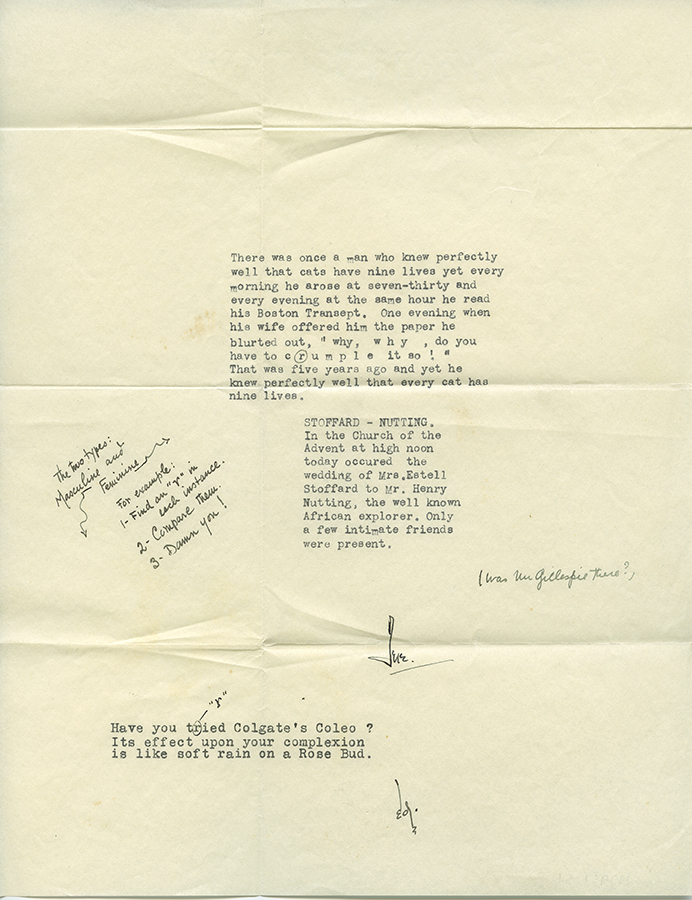 There was once a man who knew perfectly
well that cats have nine lives yet every
morning he arose at seven-thirty and
every evening at the same hour he read
his Boston Transept. One evening when
his wife offered him the paper he
blurted out, " why, w h y , do you
have to c r u m p l e it so ! "
That was five years ago and yet he
knew perfectly well that every cat has
nine lives.
STOFFARD - NUTTING.
In the Church of the
Advent at high noon
today occured the
wedding of Mrs.Estell
Stoffard to Mr. Henry
Nutting, the well known
African explorer. Only
a few intimate friends
were present.
The two types:
Masculine and
Feminine
For example:
1- Find an "r" in
each instance.
2- Compare them.
3- Damn you!
(Was Mr Gillespie there?)
"r"
Have you tried Colgate's Coleo ?
Its effect upon your complexion
is like soft rain on a Rose Bud.